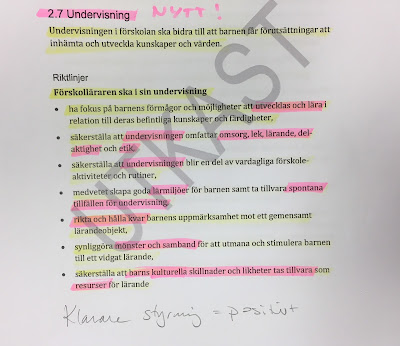 2.7 Undervisning NYTT!
Undervisningen i förskolan ska bidra till att barnen får förutsättningar att
inhämta och utveckla kunskaper och värden.
Riktlinjer
Förskolläraren ska i sin undervisning
• ha fokus på barnens förmågor och möjligheter att utvecklas och lära i
relation till deras befintliga kunskaper och färdigheter,
• säkerställa att undervisningen omfattar omsorg, lek, lärande, del-
aktighet och etik,
• säkerställa att undervisningen blir en del av vardagliga förskole-
aktiviteter och rutiner,
• medvetet skapa goda lärmiljöer för barnen samt ta tillvara spontana
tillfällen för undervisning,
• rikta och hålla kvar barnens uppmärksamhet mot ett gemensamt
lärandeobjekt,
• synliggöra mönster och samband för att utmana och stimulera barnen
till ett vidgat lärande,
• säkerställa att barns kulturella skillnader och likheter tas tillvara som
resurser för lärande
UTKAST
Klarare styrning = positivt